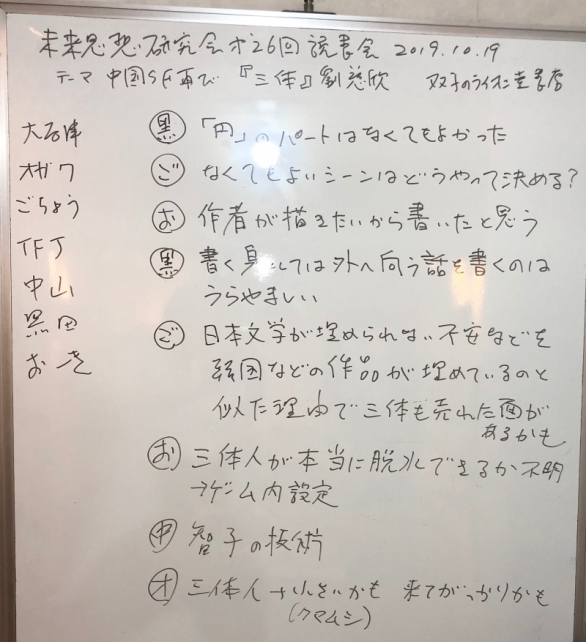 未来思想研究会 オ26回 読書会 2019.10.19
テーマ 中国SF再び 『三体』劉慈欣 双子のライオン堂書店
大石津
オガワ
ごちょう
TFJ
中山
黒田
おーき
黒 「円」のパートはなくてもよかった
ご なくてもよいシーンはどうやって決める?
お 作者が描きたいから書いたと思う
黒 書く身としては外へ向う話を書くのは
うらやましい
ご 日本文学が埋められない不安などを
韓国などの作品が埋めているのと
似た理由で三体も売れた面が
あるかも
お 三体人が本当に脱水できるか不明
→ゲーム内設定
中 智子の技術
オ 三体人→小さいかも 来てがっかりかも
(クマムシ)